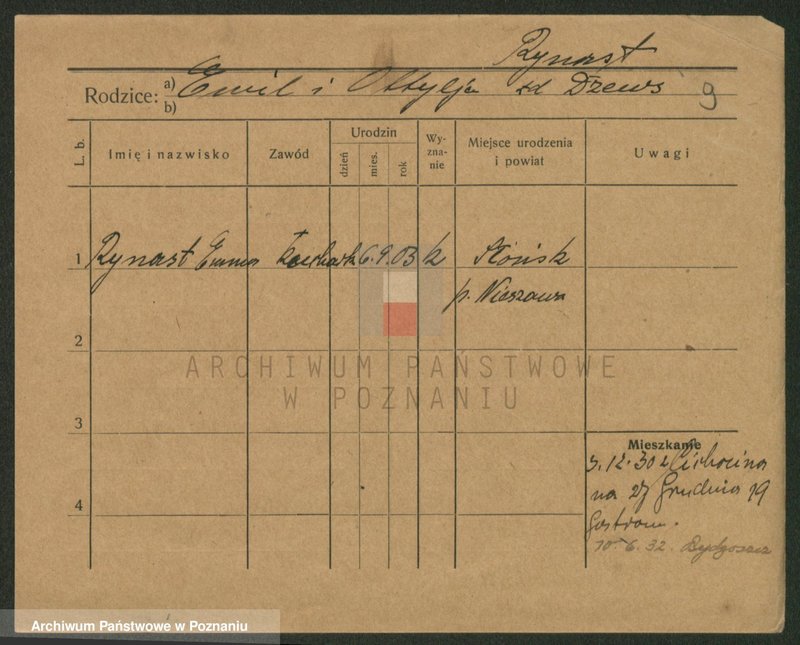 Rynast
Rodzice: a) Emil i Ottylja zd Dzews 9
b)
L. b. Imię i nazwisko Zawód Urodzin dzień mies. rok Wy-zna-nie Miejsce urodzenia i powiat Uwagi
1 Rynast Emma Kuchark 6. 9. 03 k Słońsk
p. Nieszawa
2
ARCHIWUM PAŃSTWOWE
W POZNANIU
3
Mieszkanie
3.12.30 z Cichocina
na 27 Grudnia 19
4
10-6.32. Bydgoszcz
Archiwum Państwowe w Poznaniu